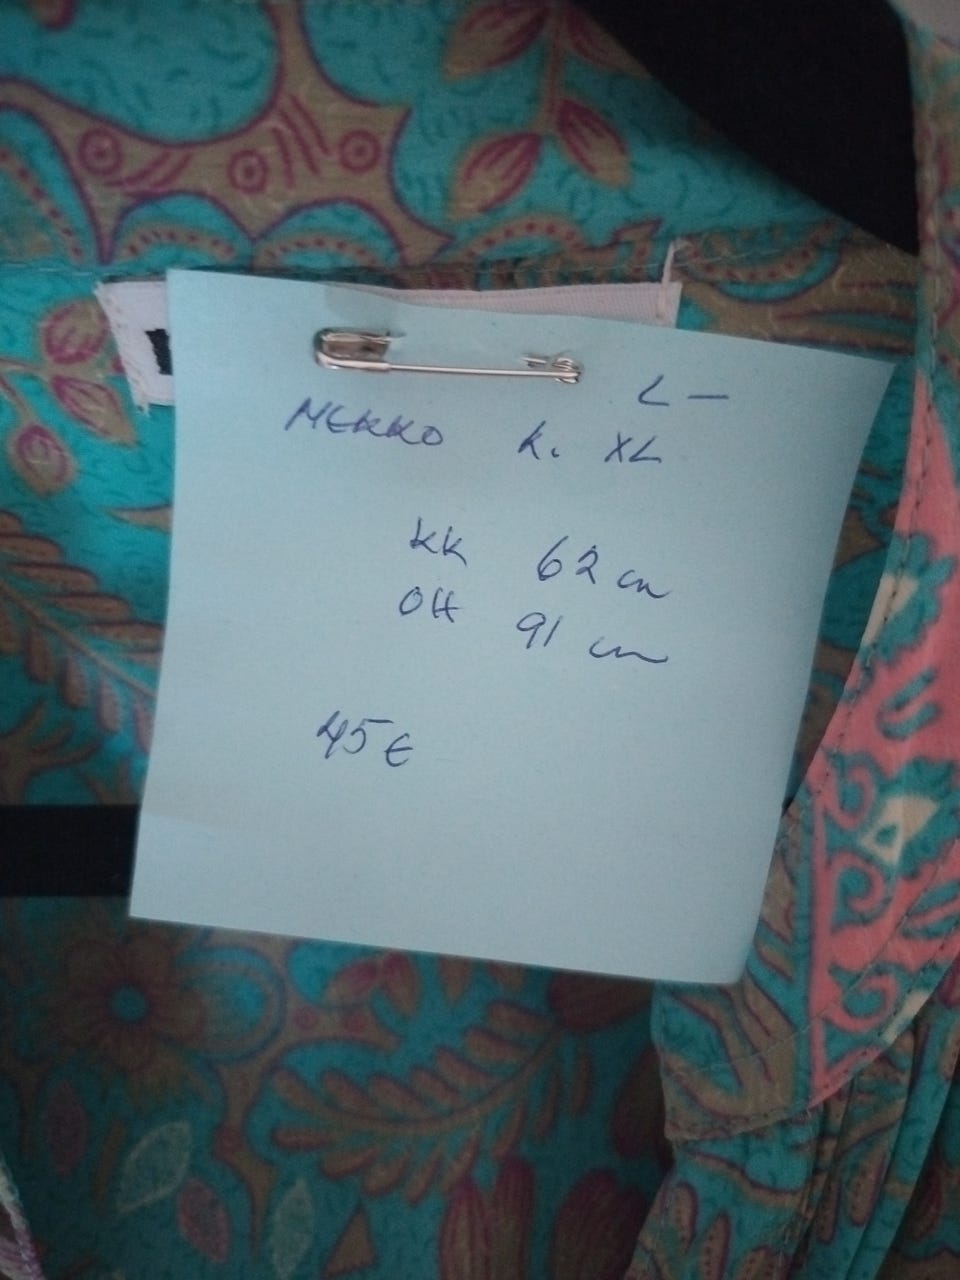 L –
MEKKO k. XL
KK 62 cm
OH 91 cm
45 €